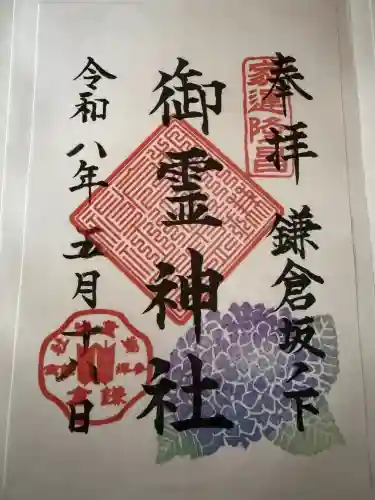 奉拝
鎌倉坂ノ下
家運隆昌
御霊神社
令和八年五月十八日